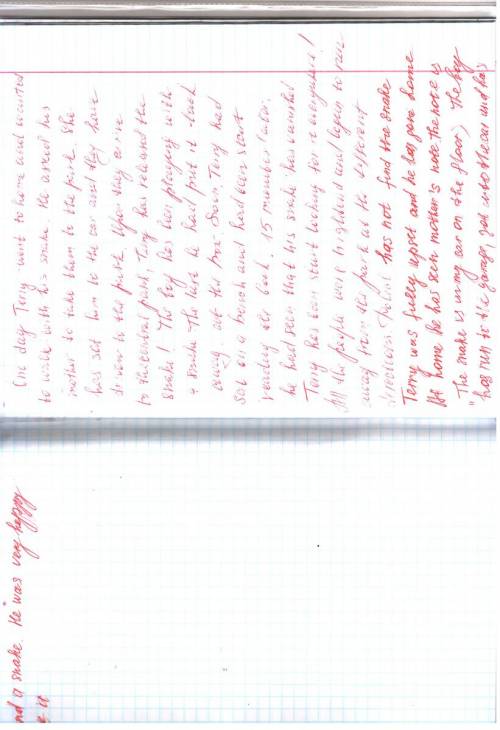 One day Terry went to home and wanted
to walk with his snake. He asked his
mother to take them to the park. She
has set him to the car and they have
driven to the park. When they arrive
to the central park, Terry has released the
snake! The boy has been playing with
a snake. The last he had put it
away at the box. Soon, Terry had
sat on a bench and had been start
reading his book. 15 minutes later,
he had seen that his snake has vanished
Terry has been start looking for it everywhere!
All the people were frightened and began to run
away from the park at the different
direction. The kid has not find the snake
Terry was fairy upset and he has gone home
At home he has seen mother's note. The note is
"The snake is in my car on the floor", The boy
has run to the garage, got into the car and has
nd a snake. He was very happy
e it